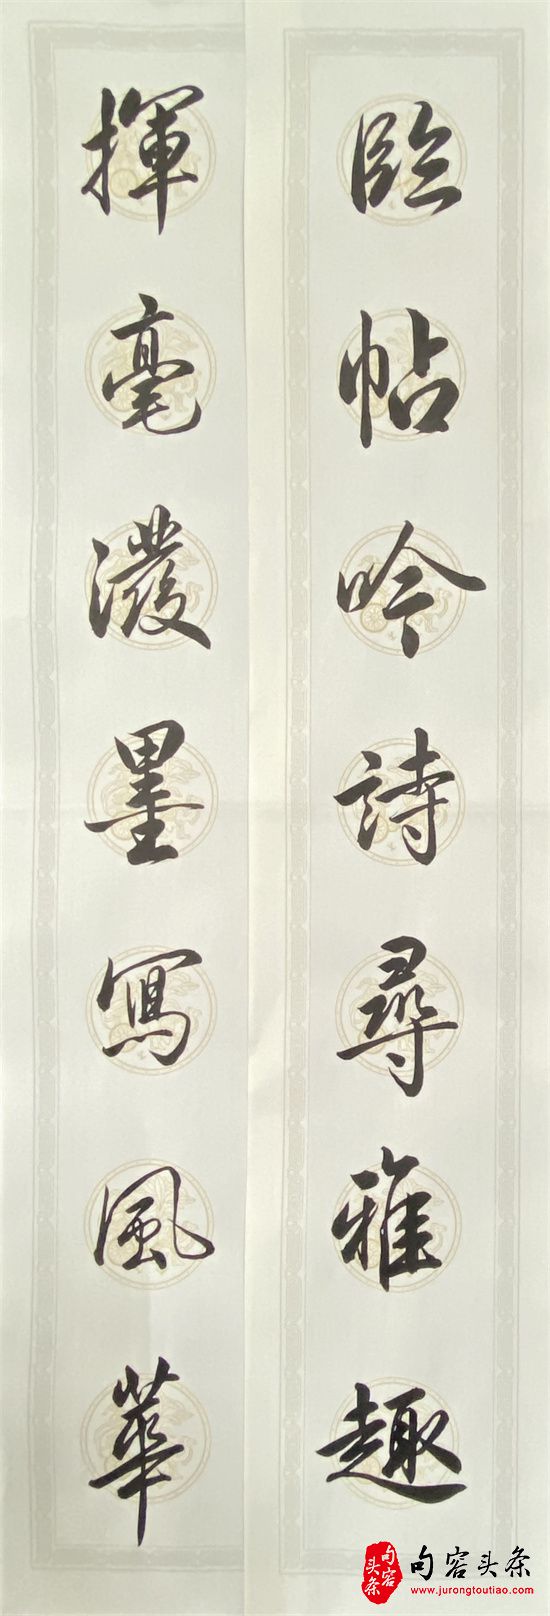 臨帖吟詩尋雅趣
揮毫潑墨寫風華
句容头条
句容头条
www.jurongtoutiao.com